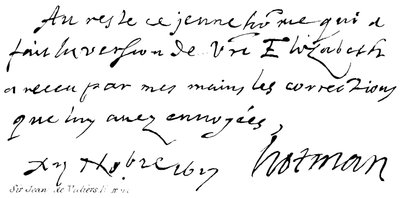 Au reste ce jeune home qui a
fait la version de vre Elizabeth
a receu par mes mains les corrections
que luy avez envoyées,
xv 9bre 1617 hotman
Sir Jean de Valiers